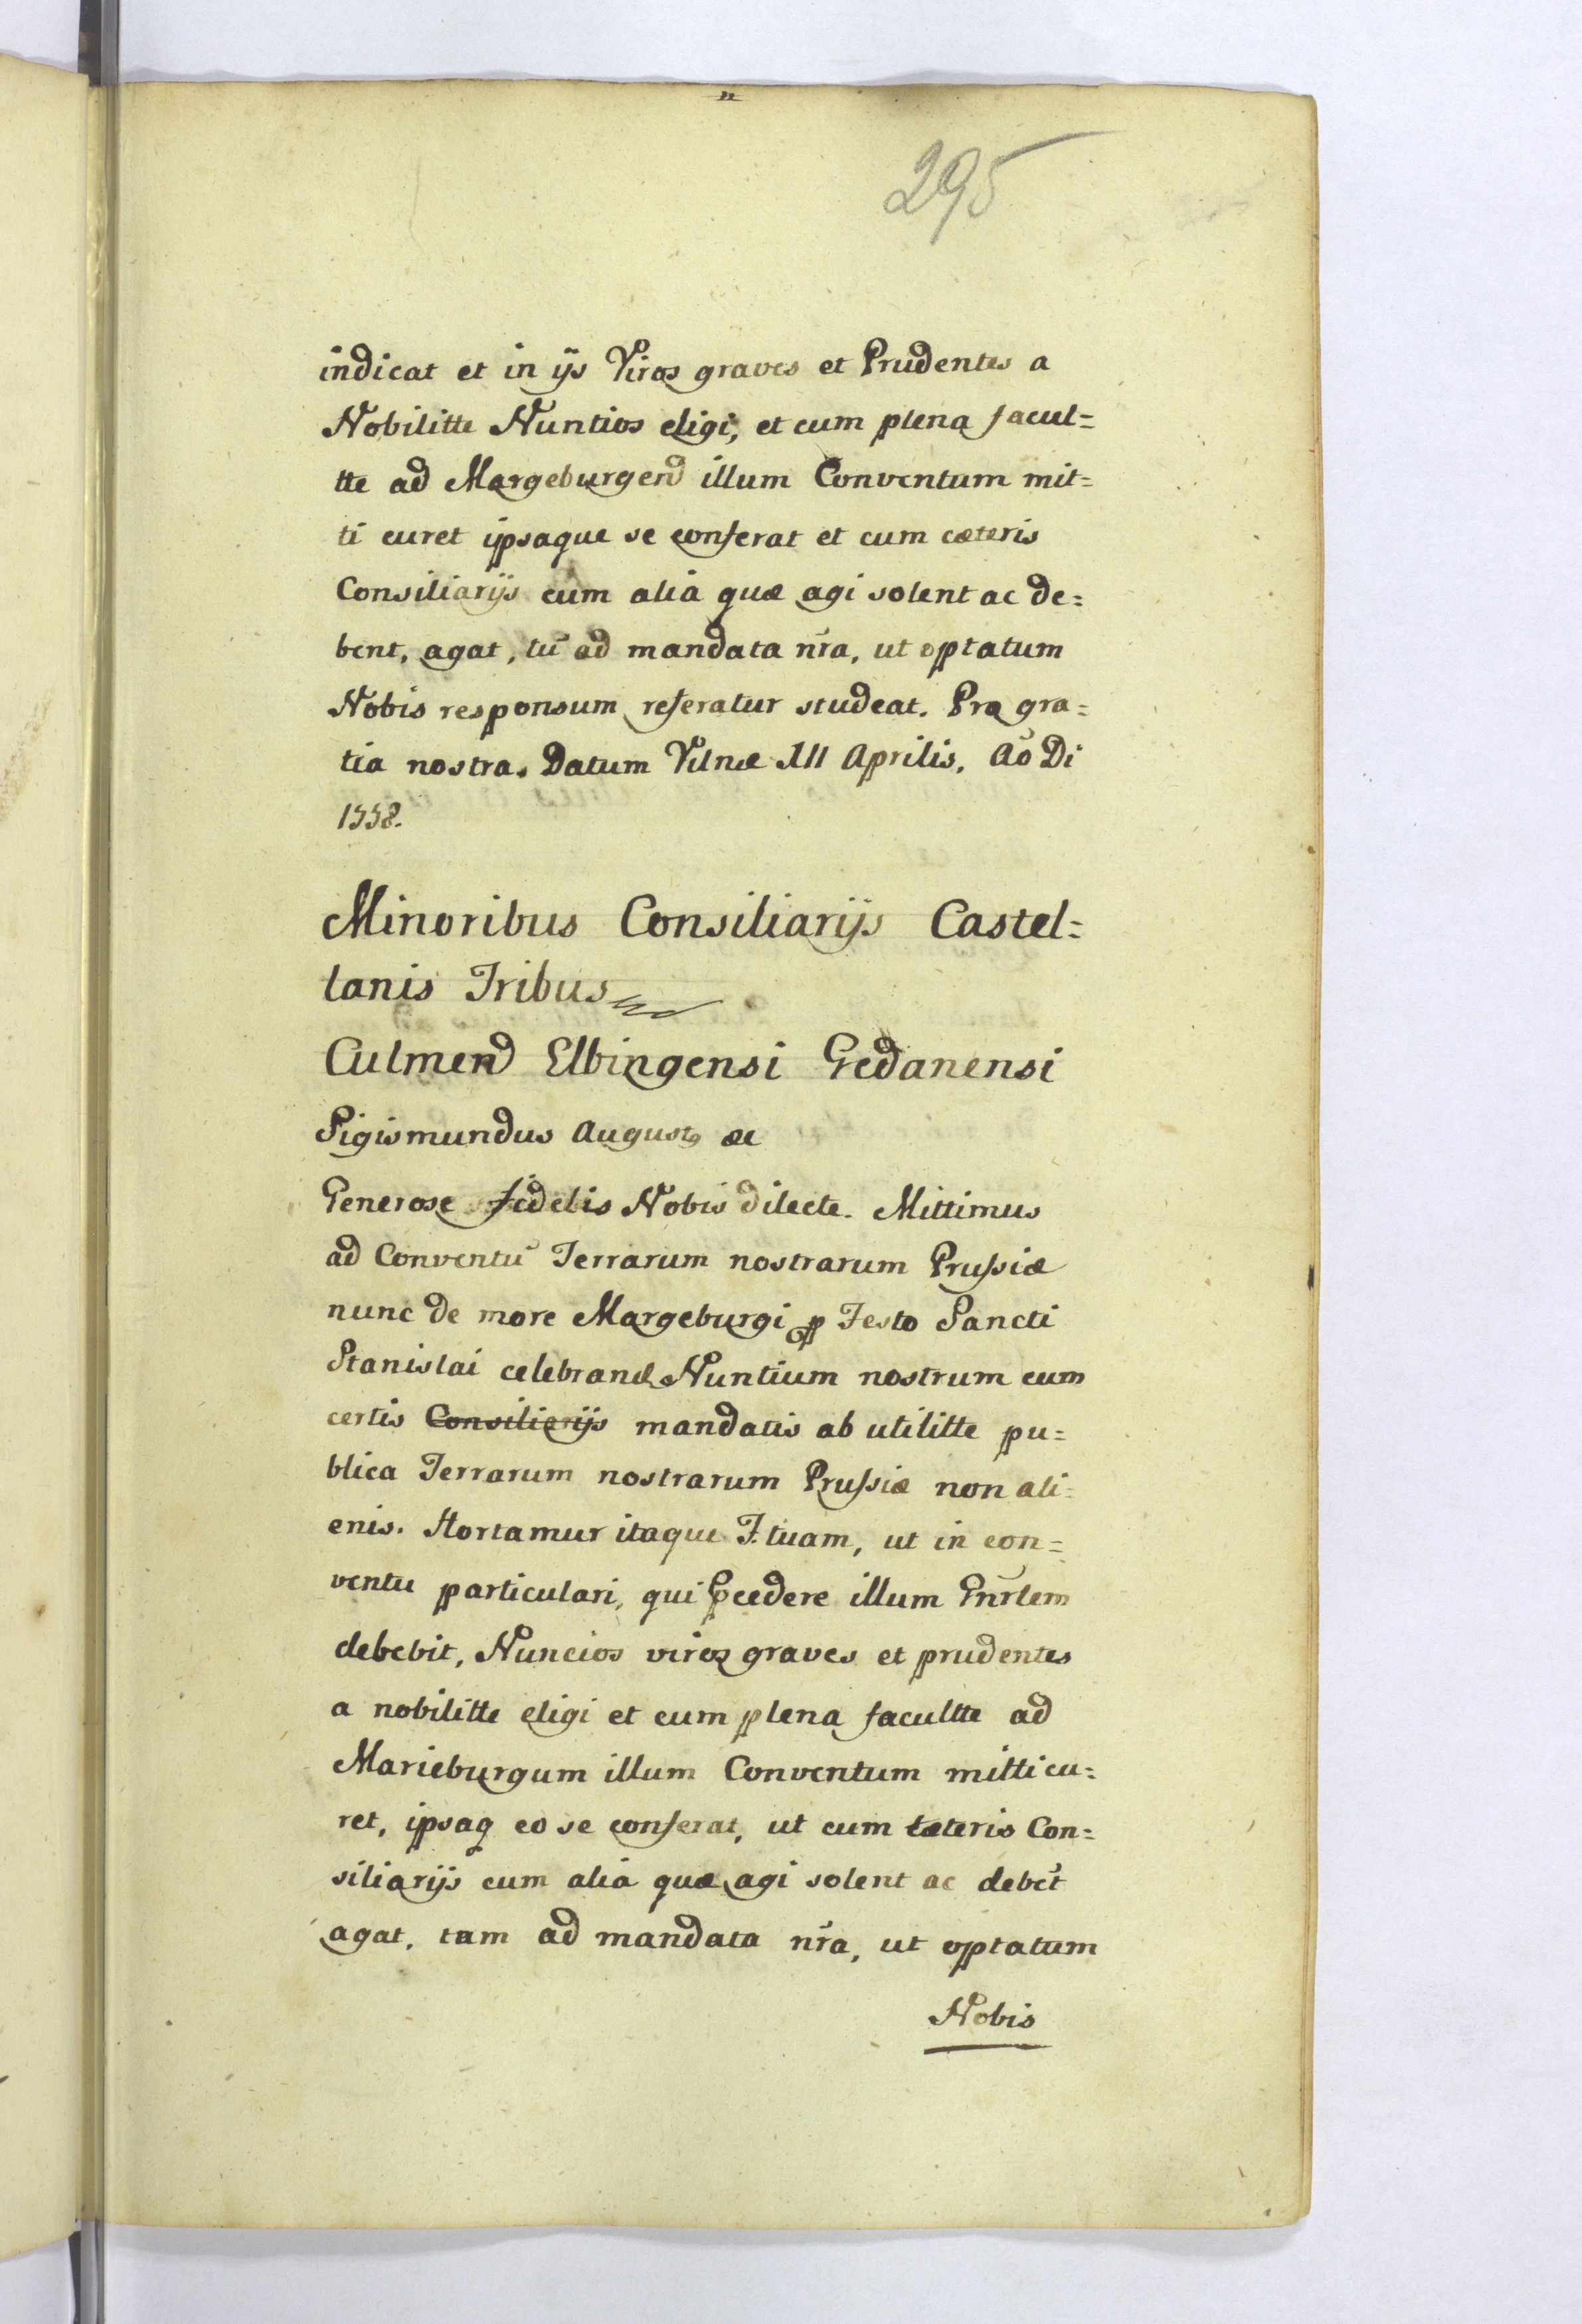 295
indicat et in ijs Viros graves et Prudentes a
Nobilitte Nuntios eligi, et cum plena facul=
tte ad Margeburgend illum Conventum mit=
ti curet ipsaque se conferat et cum cæteris
Consiliarijs cum alia quæ agi solent ac de=
bent, agat, tū ad mandata nr̄a, ut optatum
Nobis responsum referatur studeat. Pro gra=
tia nostra. Datum Vilnæ III Aprilis. Aō Di
1558.
Minoribus Consiliarijs Castel=
lanis Tribus
Culmend Elbingensi Gedanensi
Sigismundus August9 &c
Generose fidelis Nobis dilecte. Mittimus
ad Conventū Terrarum nostrarum Prussiæ
nunc de more Margeburgi p Festo Sancti
Stanislai celebrand Nuntium nostrum cum
certis Consiliarijs mandatis ab utilitte pu=
blica Terrarum nostrarum Prussiæ non ali=
enis. Hortamur itaque F. tuam, ut in con=
ventu particulari, qui pcedere illum Gnr̄lem
debebit, Nuncios viros graves et prudentes
a nobilitte eligi et cum plena facultte ad
Marieburgum illum Conventum mitti cu=
ret, ipsaq eo se conferat, ut cum cæteris Con=
siliarijs cum alia quæ agi solent ac debēt
agat, tam ad mandata nr̄a, ut optatum
Nobis